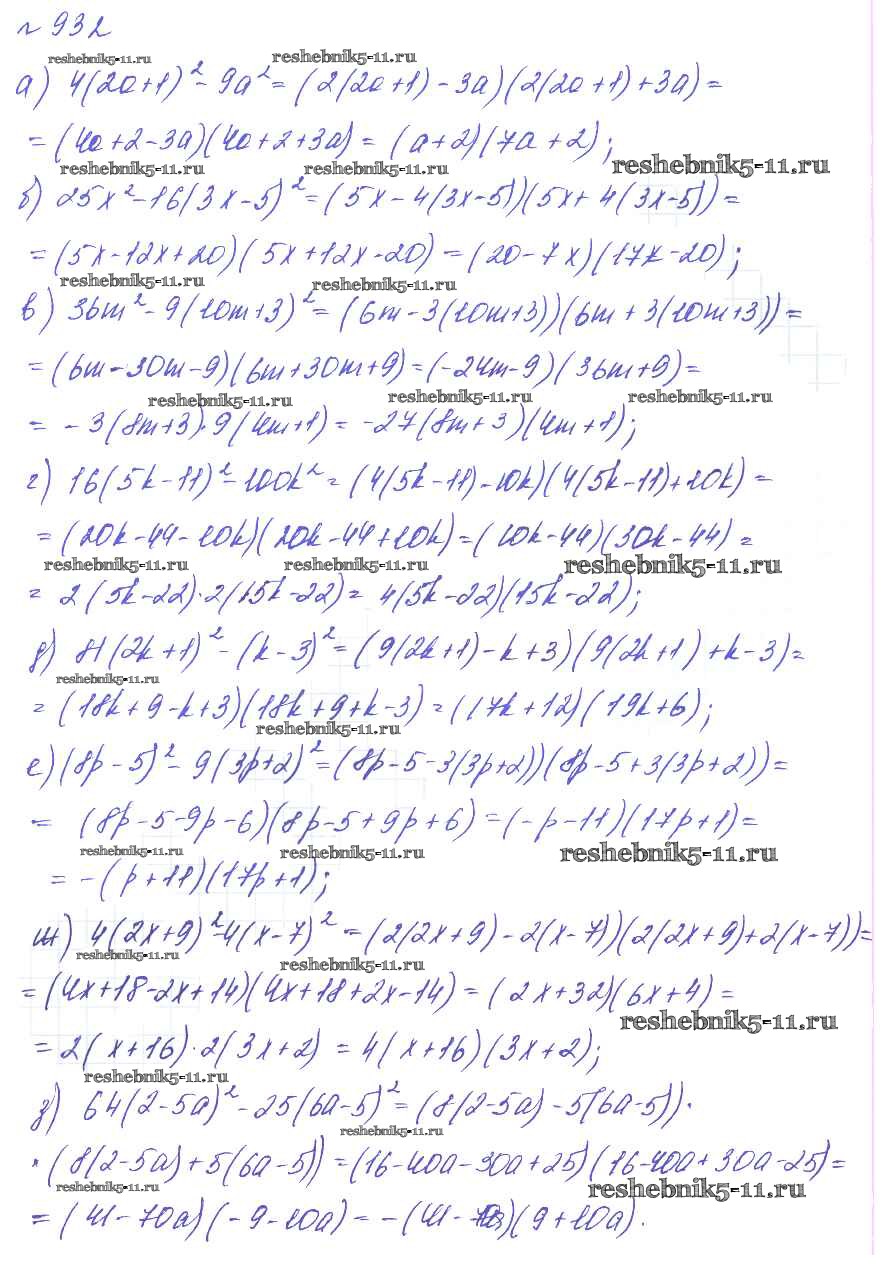 №932
reshebnik5-11.ru reshebnik5-11.ru
а) 4(2a+1)² - 9a² = (2(2a+1) - 3a)(2(2a+1)+3a) =
= (4a+2-3a)(4a+2+3a) = (a+2)(7a+2);
reshebnik5-11.ru reshebnik5-11.ru reshebnik5-11.ru
б) 25x² - 16(3x-5)² = (5x - 4(3x-5))(5x + 4(3x-5)) =
= (5x-12x+20)(5x+12x-20) = (20-7x)(17x-20);
reshebnik5-11.ru reshebnik5-11.ru
в) 36m² - 9(10m+3)² = (6m - 3(10m+3))(6m + 3(10m+3)) =
= (6m-30m-9)(6m+30m+9) = (-24m-9)(36m+9) =
reshebnik5-11.ru reshebnik5-11.ru reshebnik5-11.ru
= -3(8m+3)·9(4m+1) = -27(8m+3)(4m+1);
г) 16(5k-11)² - 100k² = (4(5k-11)-10k)(4(5k-11)+10k) =
= (20k-44-10k)(20k-44+10k) = (10k-44)(30k-44) =
reshebnik5-11.ru reshebnik5-11.ru reshebnik5-11.ru
= 2(5k-22)·2(15k-22) = 4(5k-22)(15k-22);
д) 81(2k+1)² - (k-3)² = (9(2k+1)-k+3)(9(2k+1)+k-3) =
reshebnik5-11.ru
= (18k+9-k+3)(18k+9+k-3) = (17k+12)(19k+6);
reshebnik5-11.ru
е) (8p-5)² - 9(3p+2)² = (8p-5-3(3p+2))(8p-5+3(3p+2)) =
= (8p-5-9p-6)(8p-5+9p+6) = (-p-11)(17p+1) =
reshebnik5-11.ru reshebnik5-11.ru reshebnik5-11.ru
= -(p+11)(17p+1);
ж) 4(2x+9)² - 4(x-7)² = (2(2x+9) - 2(x-7))(2(2x+9)+2(x-7)) =
reshebnik5-11.ru reshebnik5-11.ru
= (4x+18-2x+14)(4x+18+2x-14) = (2x+32)(6x+4) =
reshebnik5-11.ru
= 2(x+16)·2(3x+2) = 4(x+16)(3x+2);
reshebnik5-11.ru
з) 64(2-5a)² - 25(6a-5)² = (8(2-5a) - 5(6a-5))·
reshebnik5-11.ru
·(8(2-5a)+5(6a-5)) = (16-40a-30a+25)(16-40a+30a-25) =
reshebnik5-11.ru reshebnik5-11.ru
= (41-70a)(-9-10a) = -(41-70a)(9+10a).